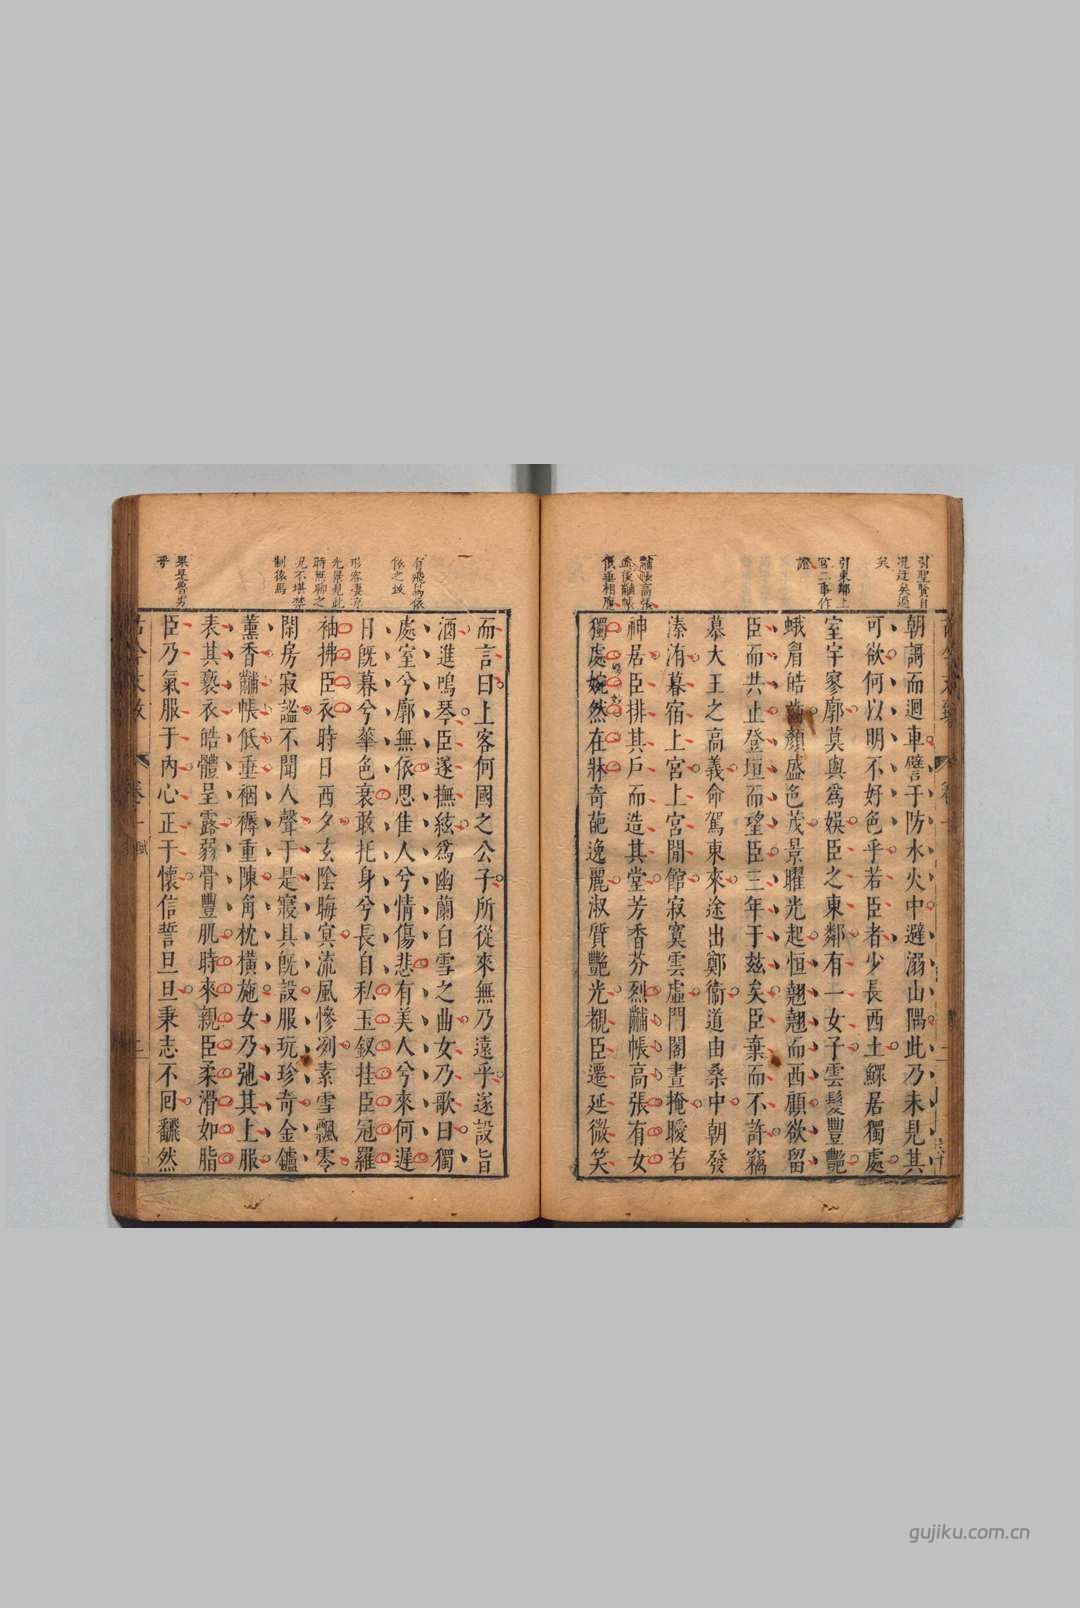 引聖賢自
況迂矣過
矣
引東鄰上
宮二事作
證
黼帳高張
低垂相應
朝謌而迴車譬于防水火中避溺山隅此乃未見其
可欲何以明不好色乎若臣者少長西土鰥居獨處
室宇寥廓莫與爲娛臣之東鄰有一女子雲髮豐艷
蛾眉皓齒顏盛色茂景曜光起恒翹翹而西顧欲留
臣而共止登垣而望臣三年于茲矣臣棄而不許竊
慕大王之高義命駕東來途出鄭衞道由桑中朝發
溱洧暮宿上宮上宮閒館寂寞雲虛門閣晝掩曖若
神居臣排其戶而造其堂芳香芬烈黼帳高張有女
獨處婉然在牀奇葩逸麗淑質艷光覩臣遷延微笑
有飛鳥依
依之致
形容凄凉
光景見此
時無聊之
見不堪禁
制依馬
果是魯男
乎
而言曰上客何國之公子所從來無乃遠乎遂設旨
酒進鳴琴臣遂撫絃爲幽蘭白雪之曲女乃歌曰獨
處室兮廓無依思佳人兮情傷悲有美人兮來何遲
日旣暮兮華色衰敢托身兮長自私玉釵挂臣冠羅
袖拂臣衣時日西夕玄陰晦冥流風慘冽素雪飄零
閑房寂謐不聞人聲于是寢具旣設服玩珍奇金鑪
薰香黼帳低垂裀褥重陳角枕橫施女乃弛其上服
表其褻衣皓體呈露弱骨豐肌時來親臣柔滑如脂
臣乃氣服于內心正于懷信誓旦旦秉志不回飜然
卷一
賦
gujiku.com.cn